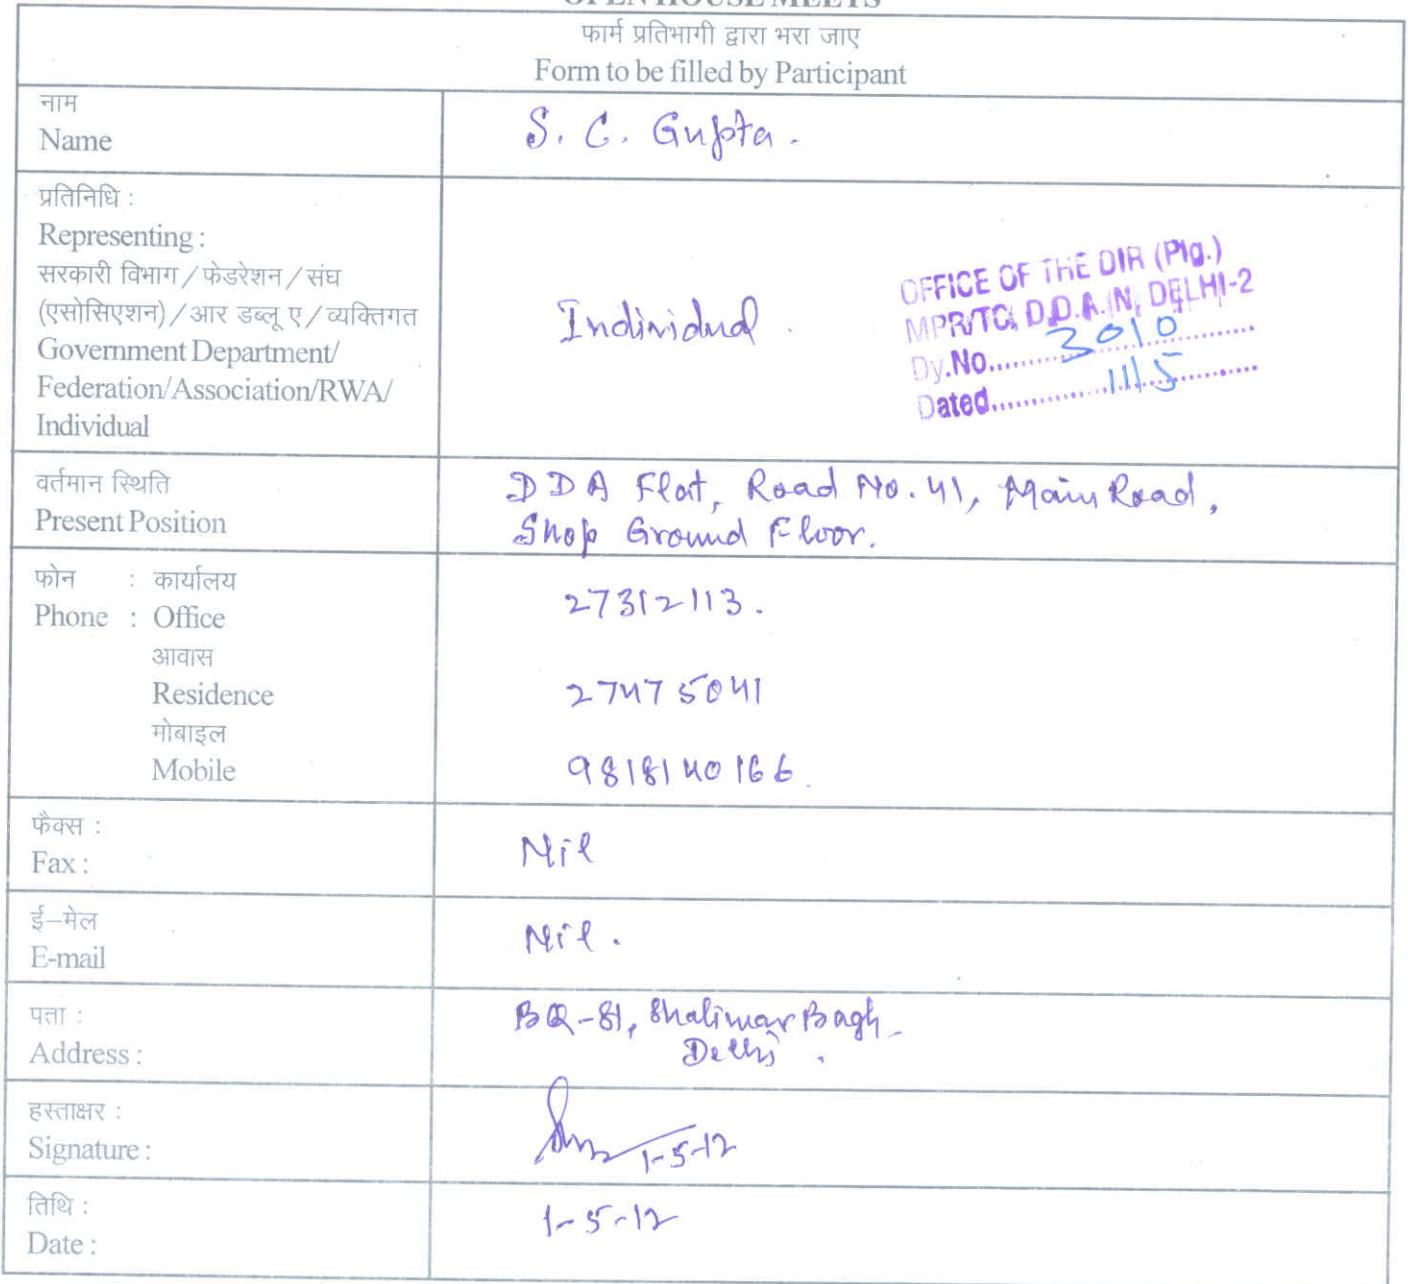 OPEN HOUSE MEETS
फार्म प्रतिभागी द्वारा भरा जाए
Form to be filled by Participant
नाम
Name
S. C. Gupta.
प्रतिनिधि :
Representing :
सरकारी विभाग / फेडरेशन / संघ
(एसोसिएशन) / आर डब्लू ए / व्यक्तिगत
Government Department/
Federation/Association/RWA/
Individual
Individual.
OFFICE OF THE DIR (Plg.)
MPR/TC, D.D.A. N. DELHI-2
Dy.No..........3010..........
Dated..............11/5..........
वर्तमान स्थिति
Present Position
DDA Flat, Road No. 41, Main Road,
Shop Ground Floor.
फोन : कार्यालय
Phone : Office
27312113.
आवास
Residence
27475041
मोबाइल
Mobile
9818140166.
फैक्स :
Fax :
Nil
ई–मेल
E-mail
Nil.
पता :
Address :
BQ-81, Shalimar Bagh
Delhi.
हस्ताक्षर :
Signature :
1-5-12
तिथि :
Date :
1-5-12